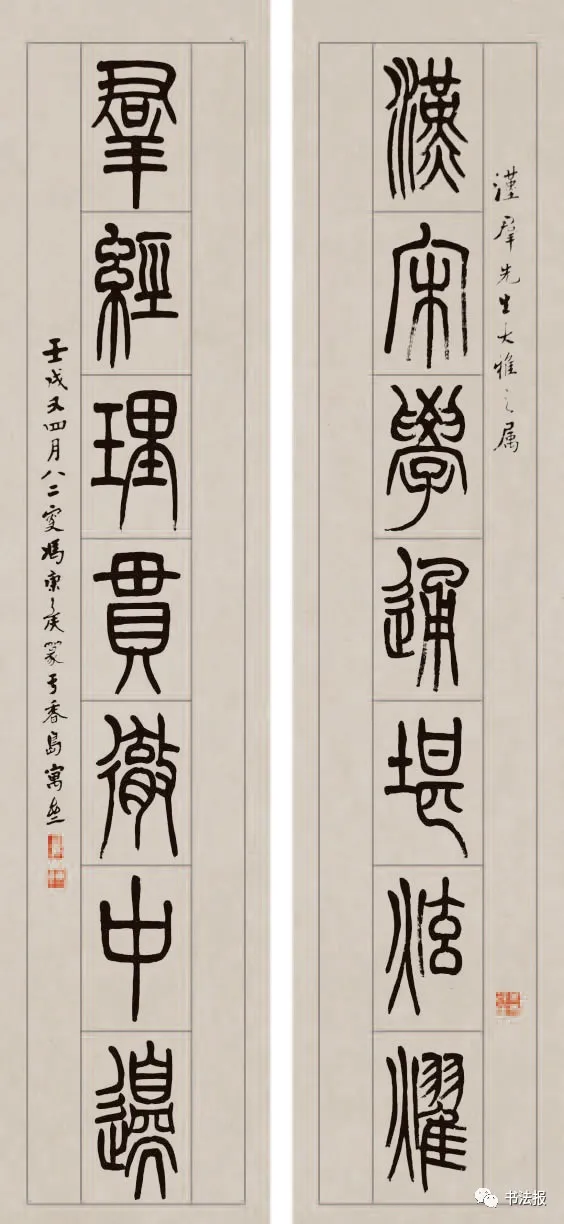 漢羣先生大雅之属
漢宋學通堪炫燿
羣經理貫徹中邊
壬戌又四月八二叟馮康矦篆于香島寓
书法报